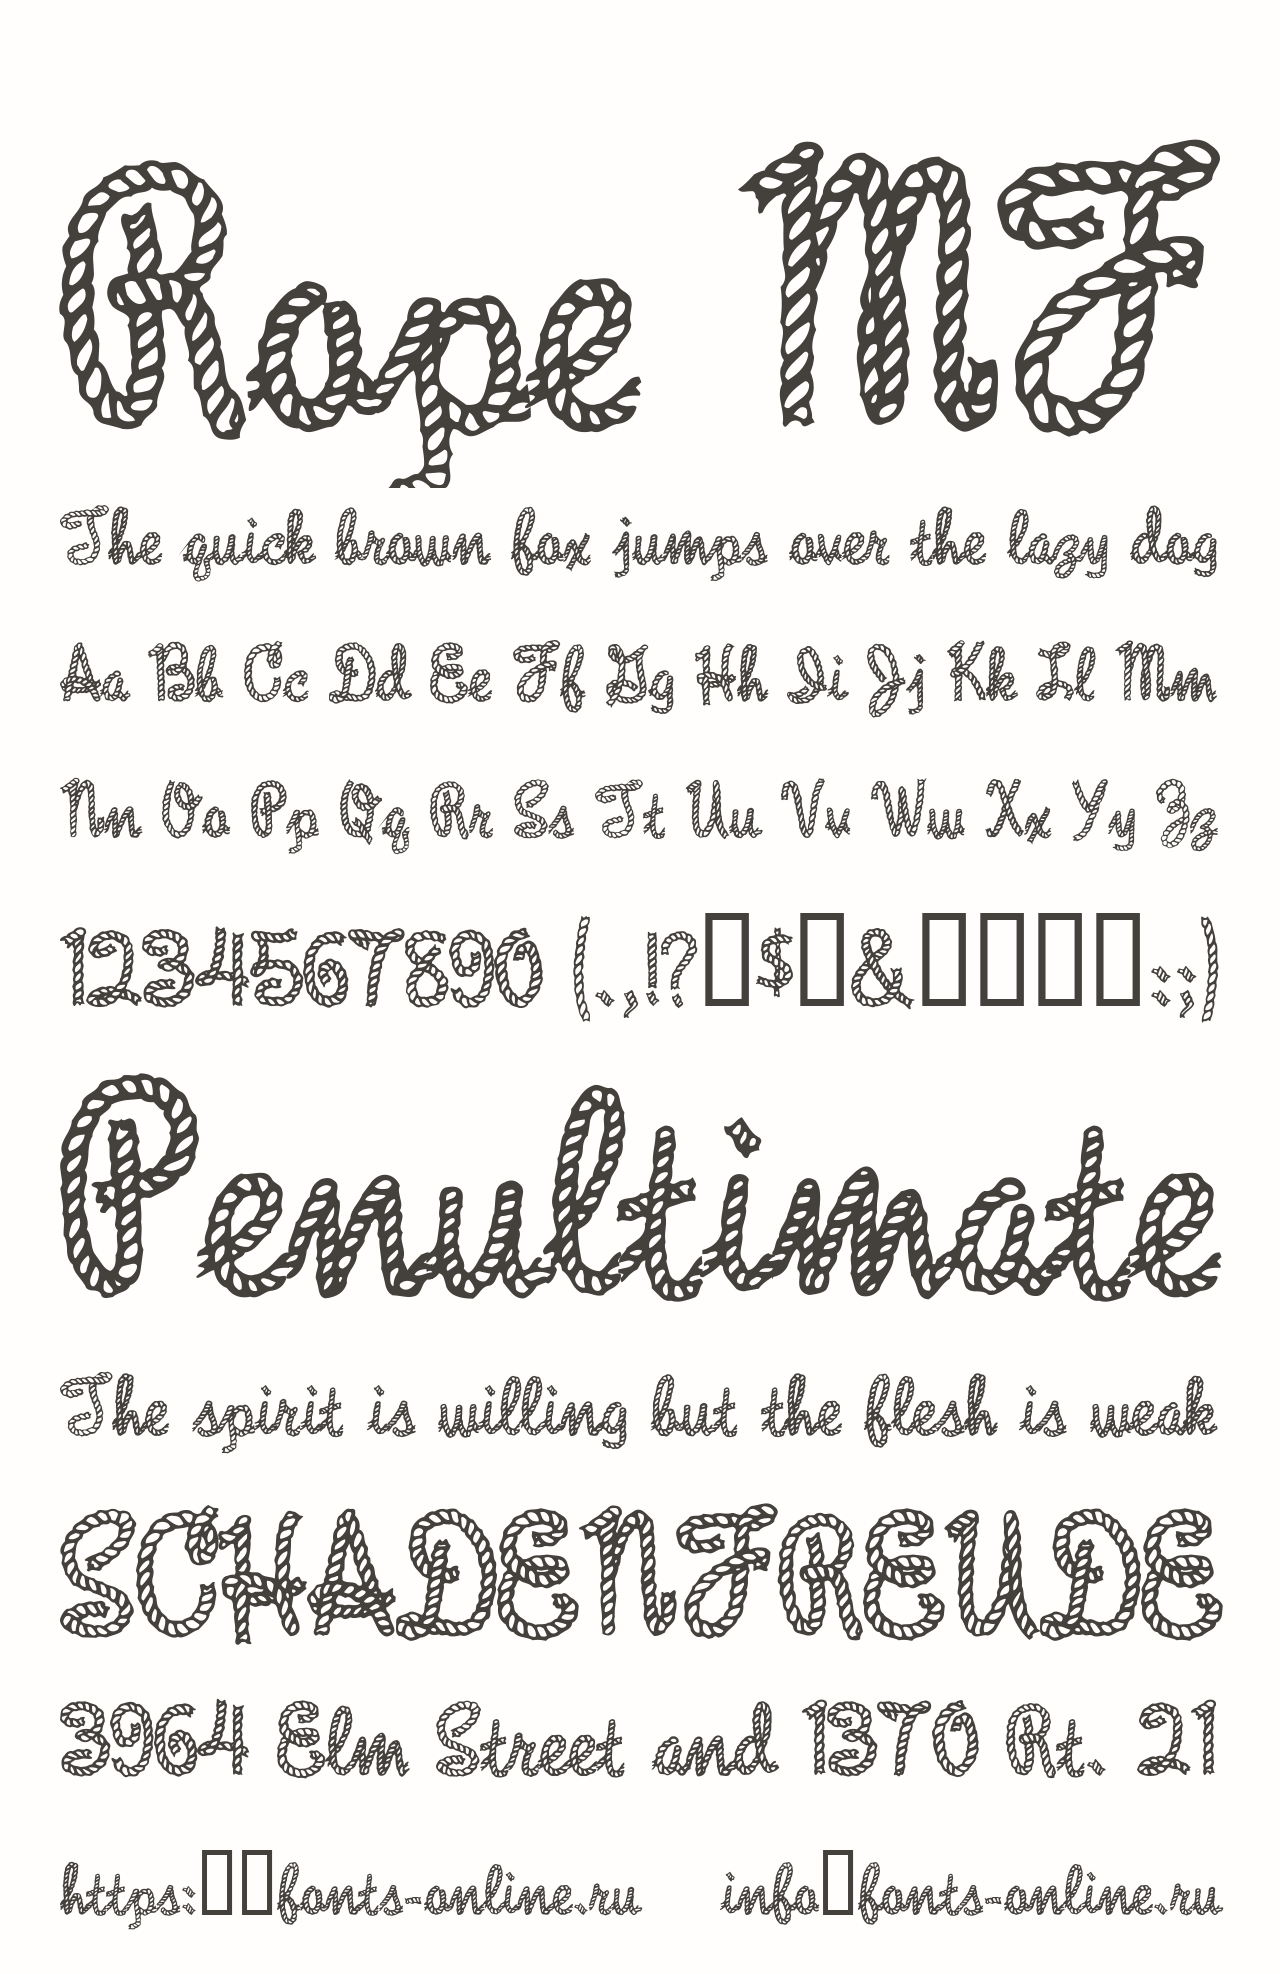 Rope MF
The quick brown fox jumps over the lazy dog
Aa Bb Cc Dd Ee Ff Gg Hh Ii Jj Kk Ll Mm
Nn Oo Pp Qq Rr Ss Tt Uu Vv Ww Xx Yy Zz
1234567890 (.,!?▯$▯&▯▯▯▯:;)
Penultimate
The spirit is willing but the flesh is weak
SCHADENFREUDE
3964 Elm Street and 1370 Rt. 21
https:▯▯fonts-online.ru info▯fonts-online.ru